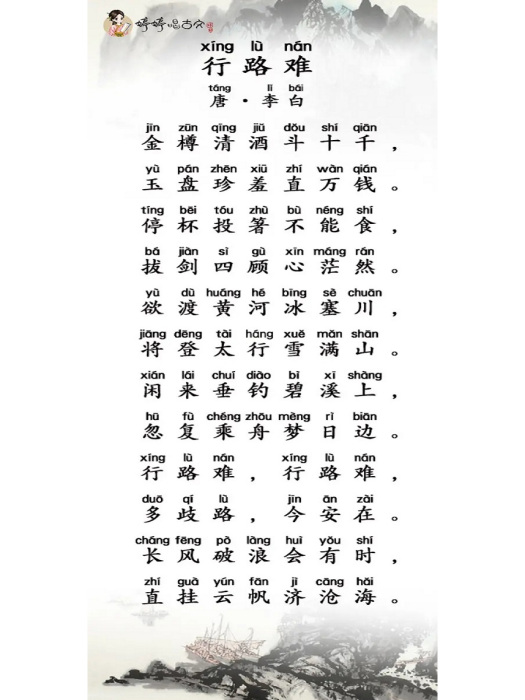 婷婷唱古文
xíng lù nán
行路难
táng lǐ bái
唐·李白
jīn zūn qīng jiǔ dǒu shí qiān
金樽清酒斗十千，
yù pán zhēn xiū zhí wàn qián
玉盘珍羞直万钱。
tíng bēi tóu zhù bù néng shí
停杯投箸不能食，
bá jiàn sì gù xīn máng rán
拔剑四顾心茫然。
yù dù huáng hé bīng sè chuān
欲渡黄河冰塞川，
jiāng dēng tài háng xuě mǎn shān
将登太行雪满山。
xián lái chuí diào bì xī shàng
闲来垂钓碧溪上，
hū fù chéng zhōu mèng rì biān
忽复乘舟梦日边。
xíng lù nán xíng lù nán
行路难，行路难，
duō qí lù jīn ān zài
多歧路，今安在。
cháng fēng pò làng huì yǒu shí
长风破浪会有时，
zhí guà yún fān jì cāng hǎi
直挂云帆济沧海。